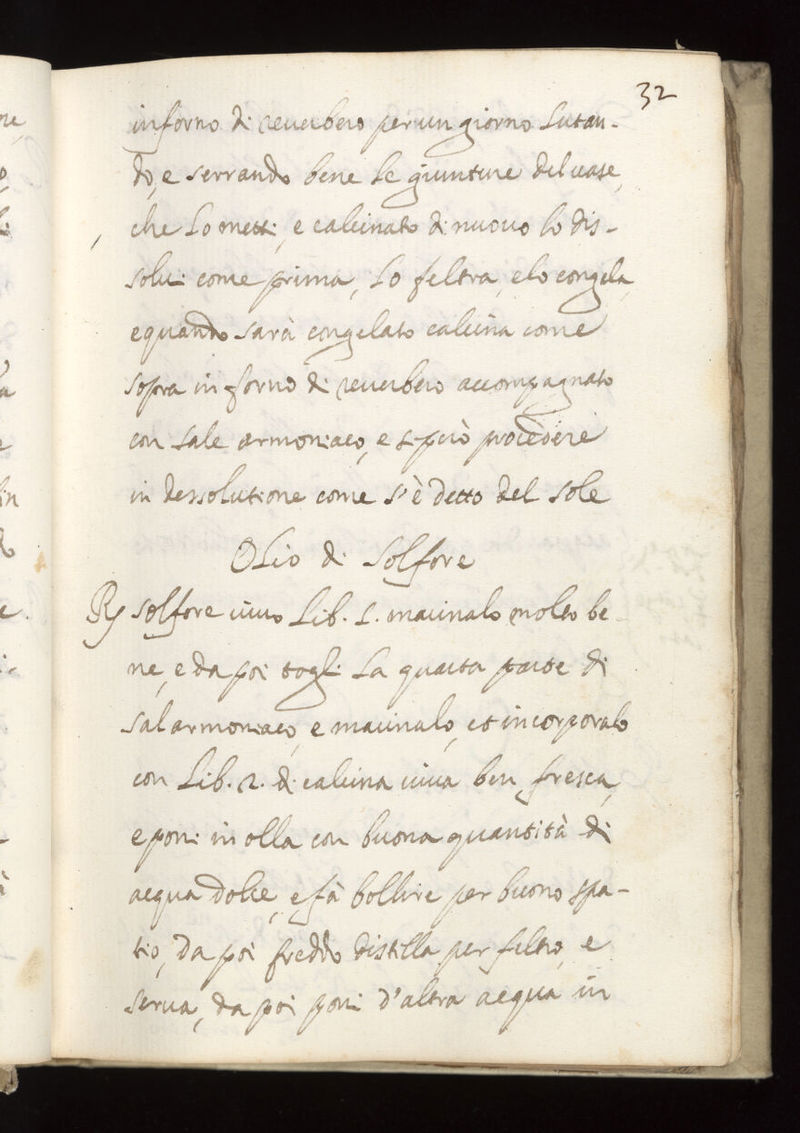 32
in forno di reverbero per un giorno lutan-
do, e serrando bene le giunture del vase,
che lo metti, e calcinato di nuovo lo dis-
solvi come prima, lo feltra, e lo congela,
e quando sarà congelato calcina come
sopra in forno di reverbero accompagnato
con sale armoniaco, e si può procedere
in dessolutione come s'è detto del sole
Olio di Solfore
℞ solfore vivo Lib. 1. macinalo molto be-
ne, e da poi togli la quarta parte di
sal armoniaco, e macinalo, et incorporalo
con Lib. 2. di calcina viva ben fresca,
e poni in olla con buona quantità di
acqua dolce, e fà bollire per buono spa-
tio, da poi freddo distilla per filtro, e
serva, da poi poni d'altra acqua in